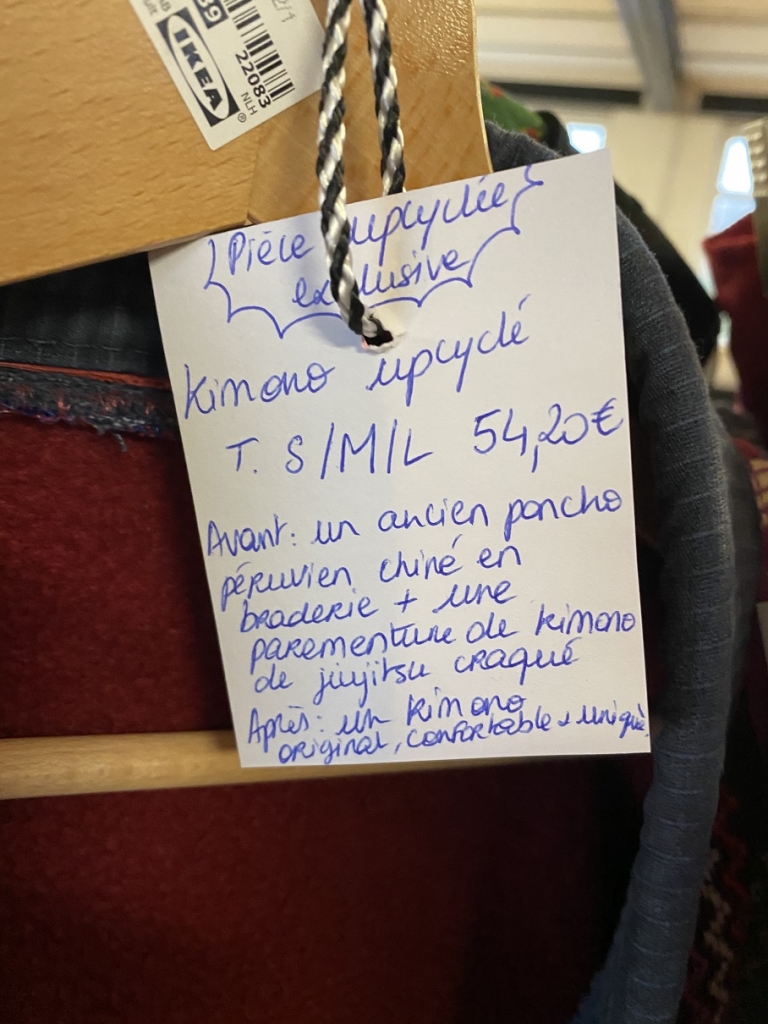 39
IKEA
®
22083
NLH
Pièce upcyclée
exclusive
Kimono upcyclé
T. S/M/L 54,20€
Avant: un ancien poncho
péruvien chiné en
braderie + une
parementure de kimono
de jiujitsu craqué
Après: un kimono
original, confortable + unique.